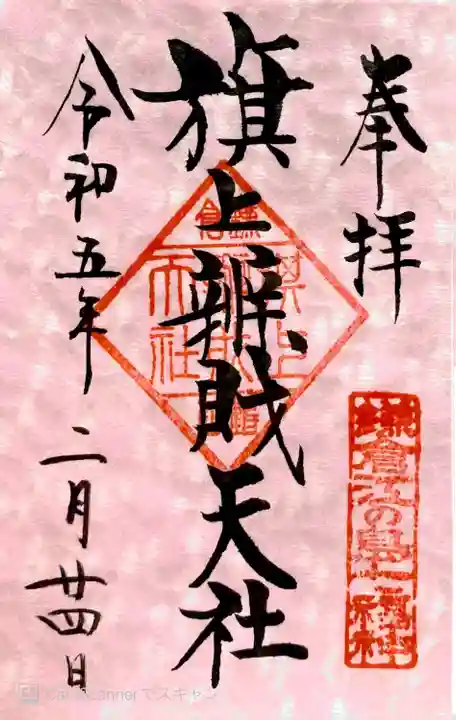 奉拝
鎌倉江の島七福神
旗上辨財天社
令和五年
二月廿四日
でスキャン